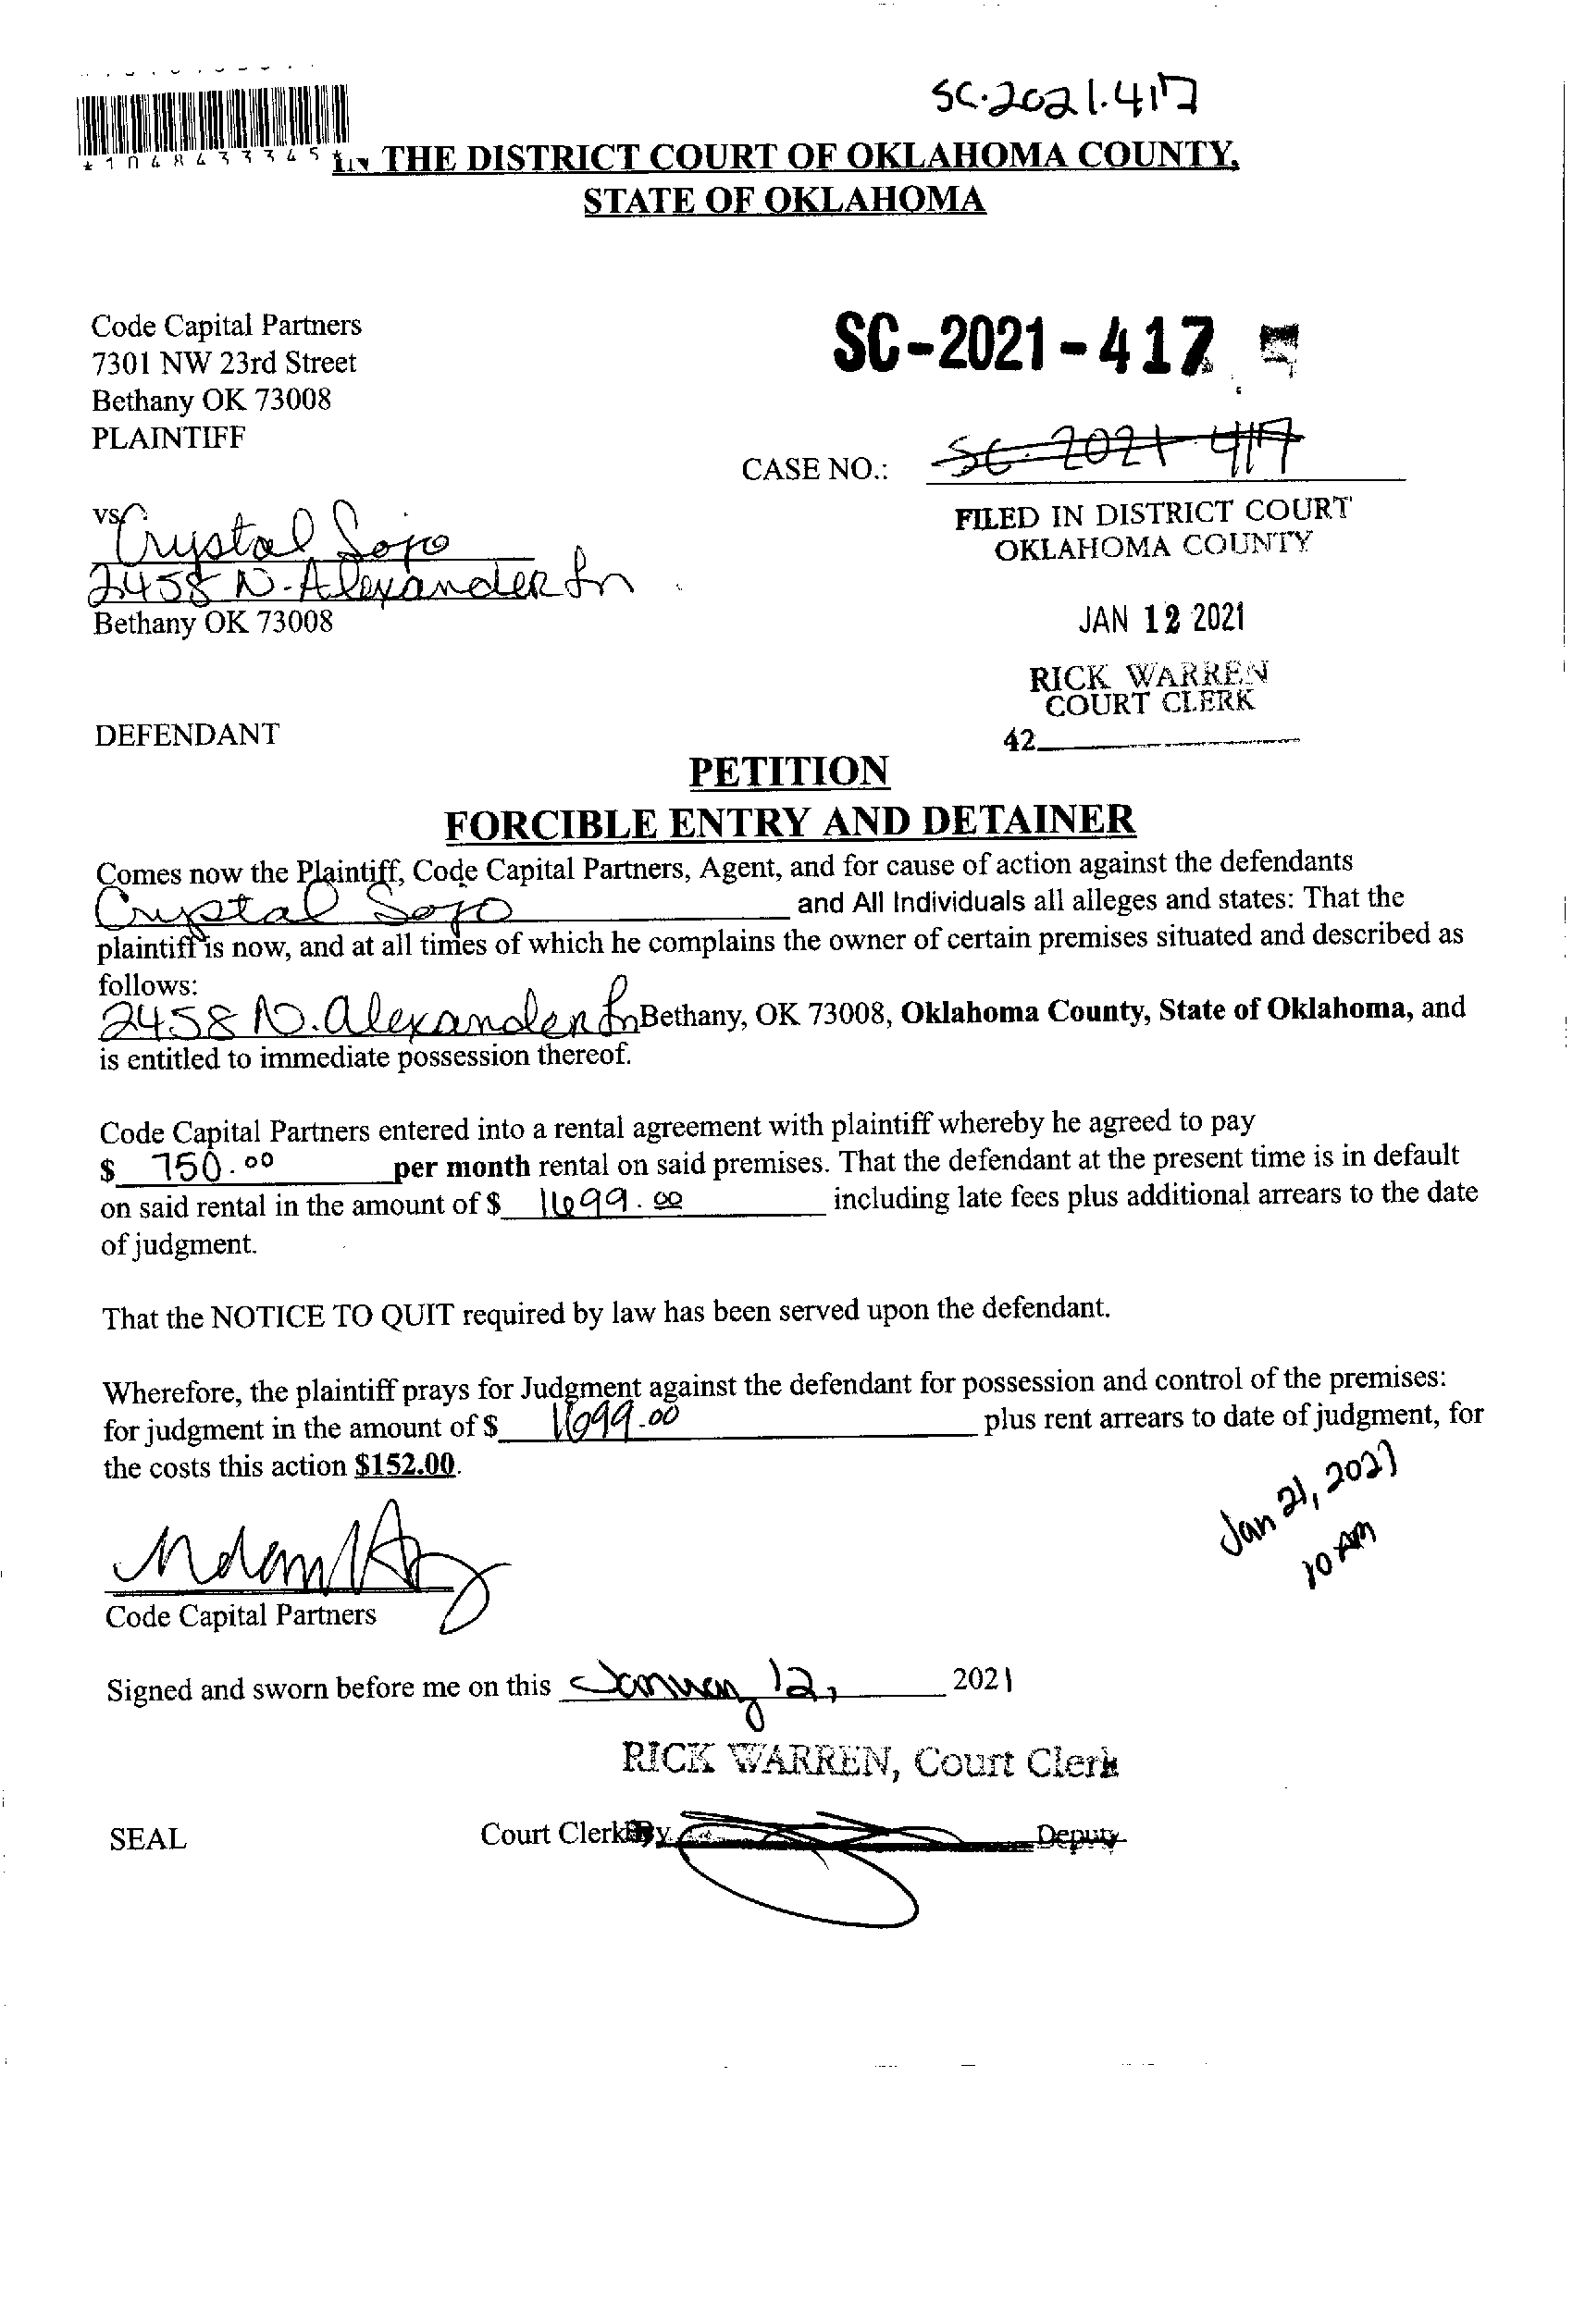 SC.2021.417
*1048433345*
IN THE DISTRICT COURT OF OKLAHOMA COUNTY,
STATE OF OKLAHOMA
Code Capital Partners
7301 NW 23rd Street
Bethany OK 73008
PLAINTIFF
SC-2021-417
CASE NO.: SC-2021-417
vs. Crystal Sojo
2458 N. Alexander Ln
Bethany OK 73008
FILED IN DISTRICT COURT
OKLAHOMA COUNTY
JAN 12 2021
RICK WARREN
COURT CLERK
42
DEFENDANT
PETITION
FORCIBLE ENTRY AND DETAINER
Comes now the Plaintiff, Code Capital Partners, Agent, and for cause of action against the defendants
Crystal Sojo and All Individuals all alleges and states: That the
plaintiff is now, and at all times of which he complains the owner of certain premises situated and described as
follows:
2458 N. Alexander Ln Bethany, OK 73008, Oklahoma County, State of Oklahoma, and
is entitled to immediate possession thereof.
Code Capital Partners entered into a rental agreement with plaintiff whereby he agreed to pay
$ 750.00 per month rental on said premises. That the defendant at the present time is in default
on said rental in the amount of $ 1699.00 including late fees plus additional arrears to the date
of judgment.
That the NOTICE TO QUIT required by law has been served upon the defendant.
Wherefore, the plaintiff prays for Judgment against the defendant for possession and control of the premises:
for judgment in the amount of $ 1699.00 plus rent arrears to date of judgment, for
the costs this action $152.00.
Jan 21, 2021
10 AM
Code Capital Partners
Signed and sworn before me on this January 12, 2021
RICK WARREN, Court Clerk
SEAL
Court Clerk By Deputy